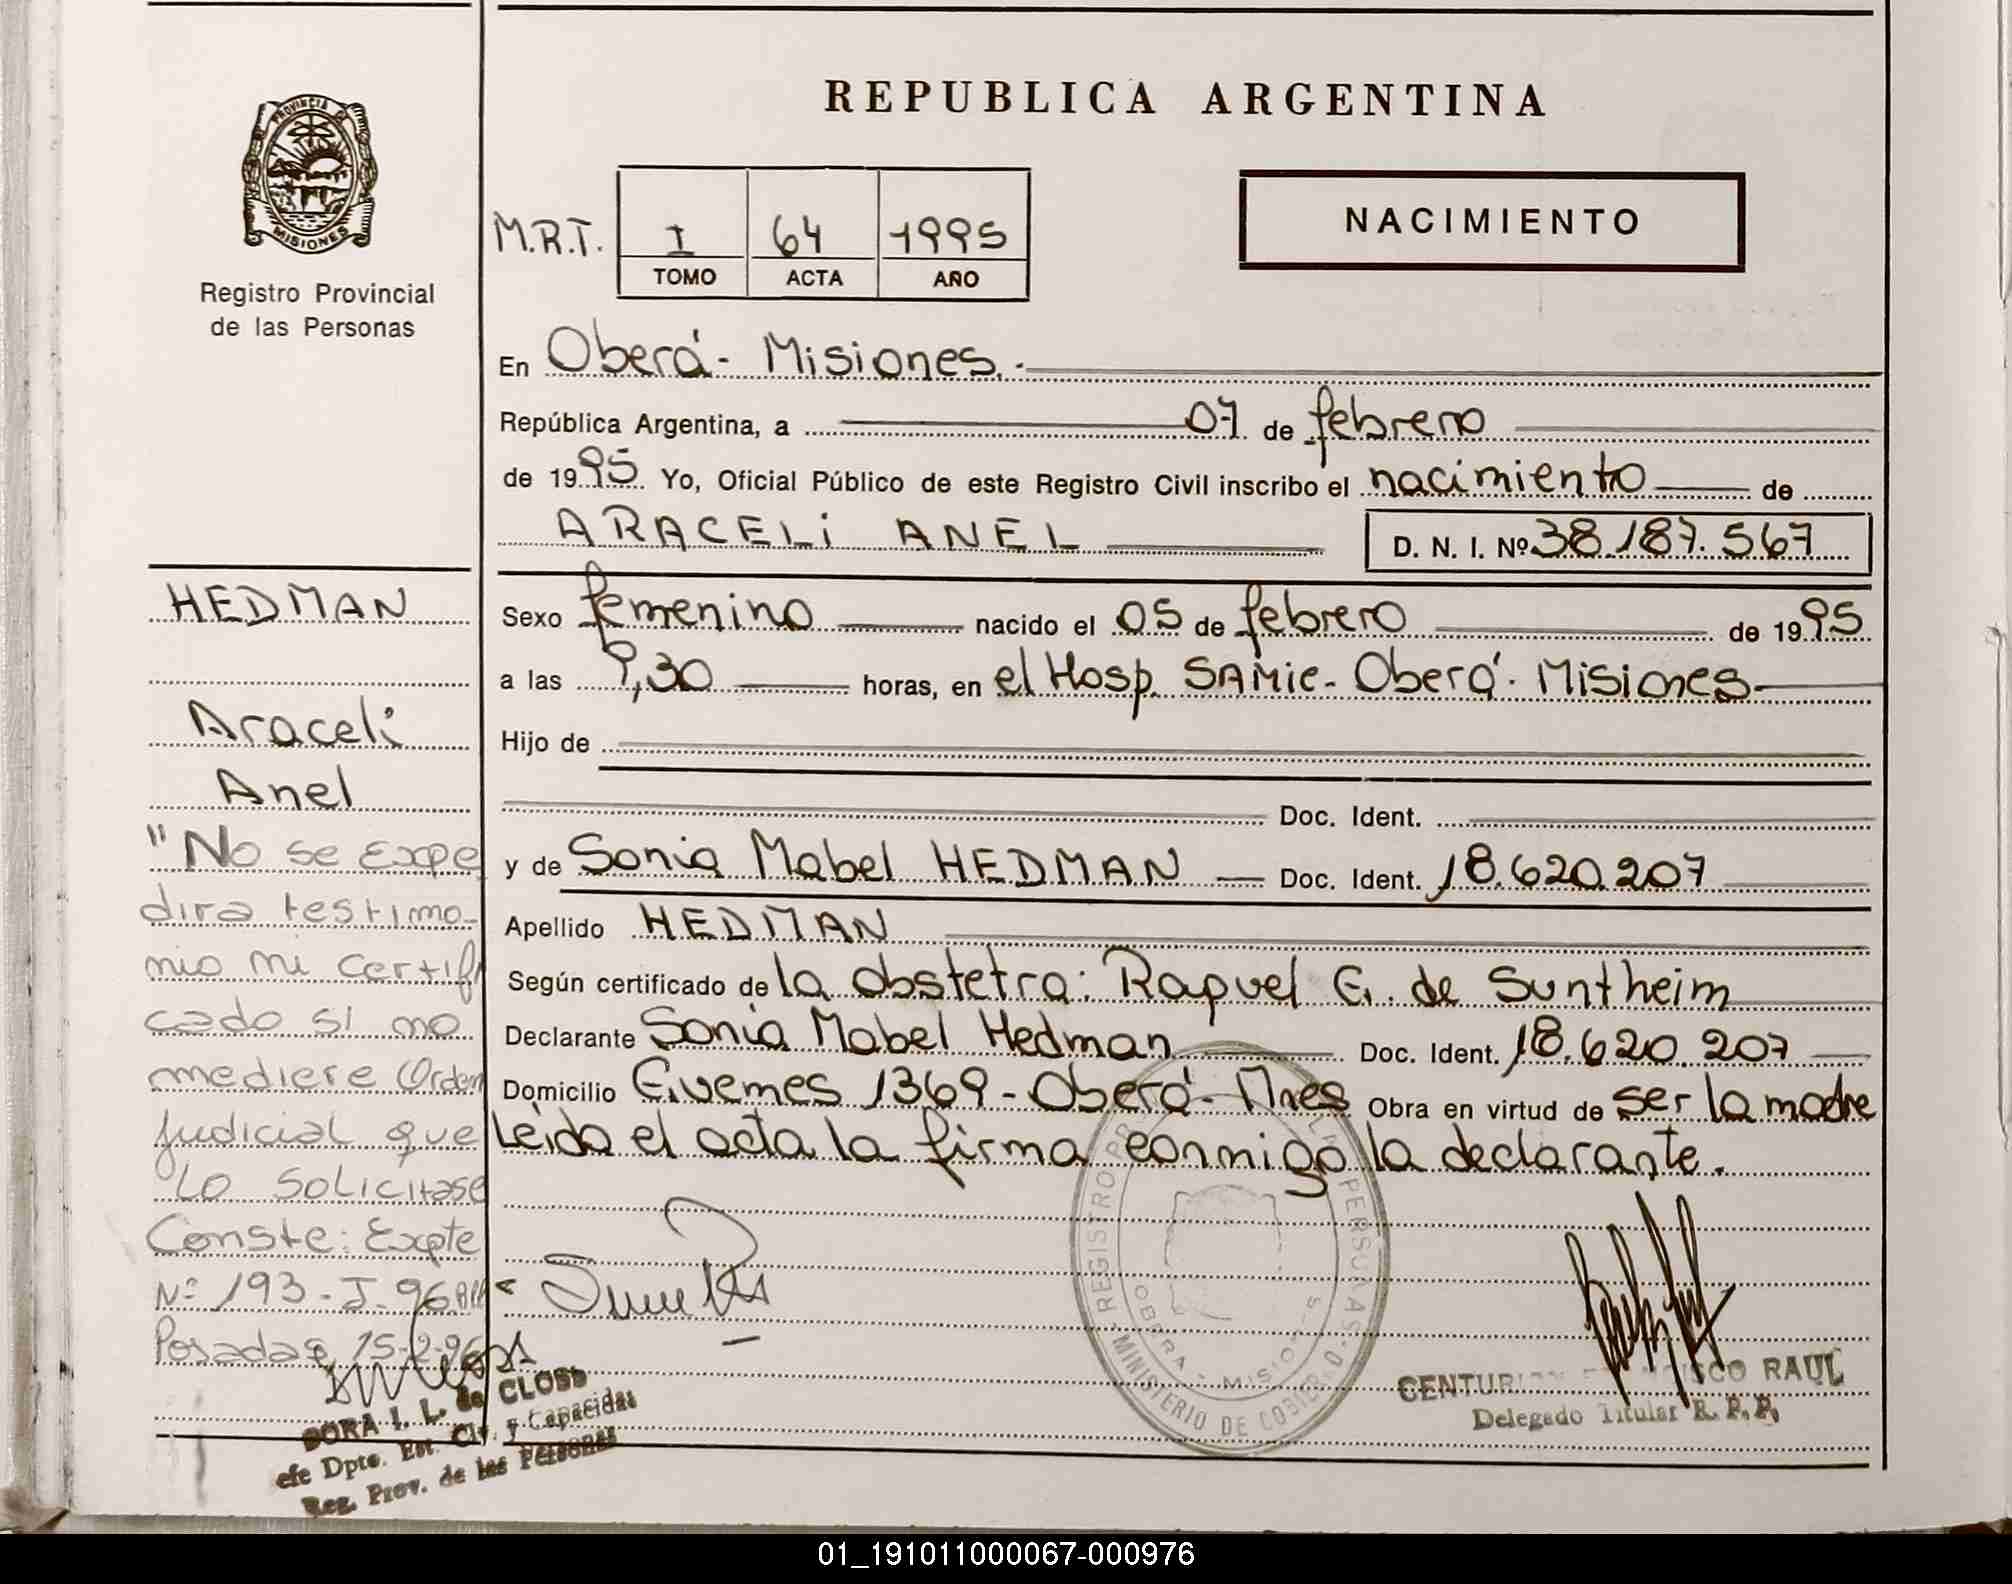 REPUBLICA ARGENTINA
PROVINCIA
MISIONES
Registro Provincial
de las Personas
M.R.T.
I 64 1995
TOMO ACTA AÑO
NACIMIENTO
En Oberá - Misiones.-
República Argentina, a 07 de febrero
de 1995 Yo, Oficial Público de este Registro Civil inscribo el nacimiento de
ARACELi ANEL D. N. I. Nº 38.187.567
Sexo femenino nacido el 05 de febrero de 1995
a las 9,30 horas, en el Hosp. SAMic - Oberá - Misiones
Hijo de
Doc. Ident.
y de Sonia Mabel HEDMAN Doc. Ident. 18.620.207
Apellido HEDMAN
Según certificado de la obstetra: Raquel G. de Suntheim
Declarante Sonia Mabel Hedman Doc. Ident. 18.620.207
Domicilio Guemes 1369 - Oberá - Mnes Obra en virtud de ser la madre
Leida el acta la firma conmigo la declarante.
HEDMAN
Araceli
Anel
"No se expe
dira testimo-
nio ni certifi
cado si no
mediere Orden
Judicial que
Lo Solicitase
Conste: Expte
Nº 193 - J - 96
Posadas, 15-2-96
DORA I. L. de CLOSS
efe Dpto. Est. Civ. y Capacidad
Reg. Prov. de las Personas
REGISTRO PERSONAS
OBERA - MISIONES
MINISTERIO DE GOBIERNO
CENTURION FRANCISCO RAUL
Delegado Titular R. P. P.
01_191011000067-000976